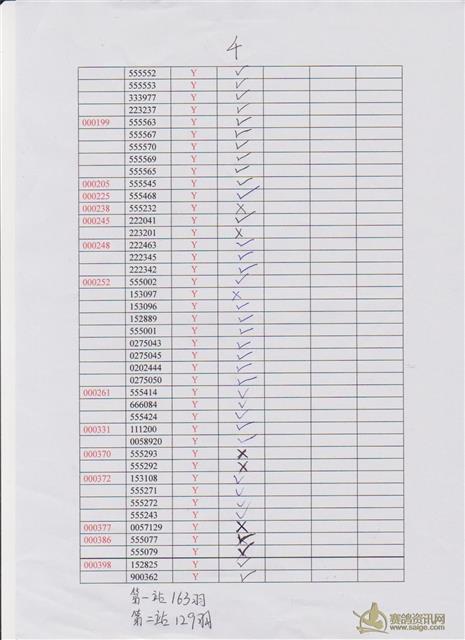 4
555552 Y ✓
555553 Y ✓
333977 Y ✓
223237 Y ✓
000199 555563 Y ✓
555567 Y ✓
555570 Y ✓
555569 Y ✓
555565 Y ✓
000205 555545 Y ✓
000225 555468 Y ✓
000238 555232 Y ×
000245 222041 Y ✓
223201 Y ×
000248 222463 Y ✓
222345 Y ✓
222342 Y ✓
000252 555002 Y ✓
153097 Y ×
153096 Y ✓
152889 Y ✓
555001 Y ✓
0275043 Y ✓
0275045 Y ✓
0202444 Y ✓
0275050 Y ✓
000261 555414 Y ✓
666084 Y ✓
555424 Y ✓
000331 111200 Y ✓
0058920 Y ✓
000370 555293 Y ×
555292 Y ×
000372 153108 Y ✓
555271 Y ✓
555272 Y ✓
555243 Y ✓
000377 0057129 Y ×
000386 555077 Y ✓
555079 Y ✓
000398 152825 Y ✓
900362 Y ✓
第一站 163羽
第二站 129羽
赛鸽资讯网
www.saige.com